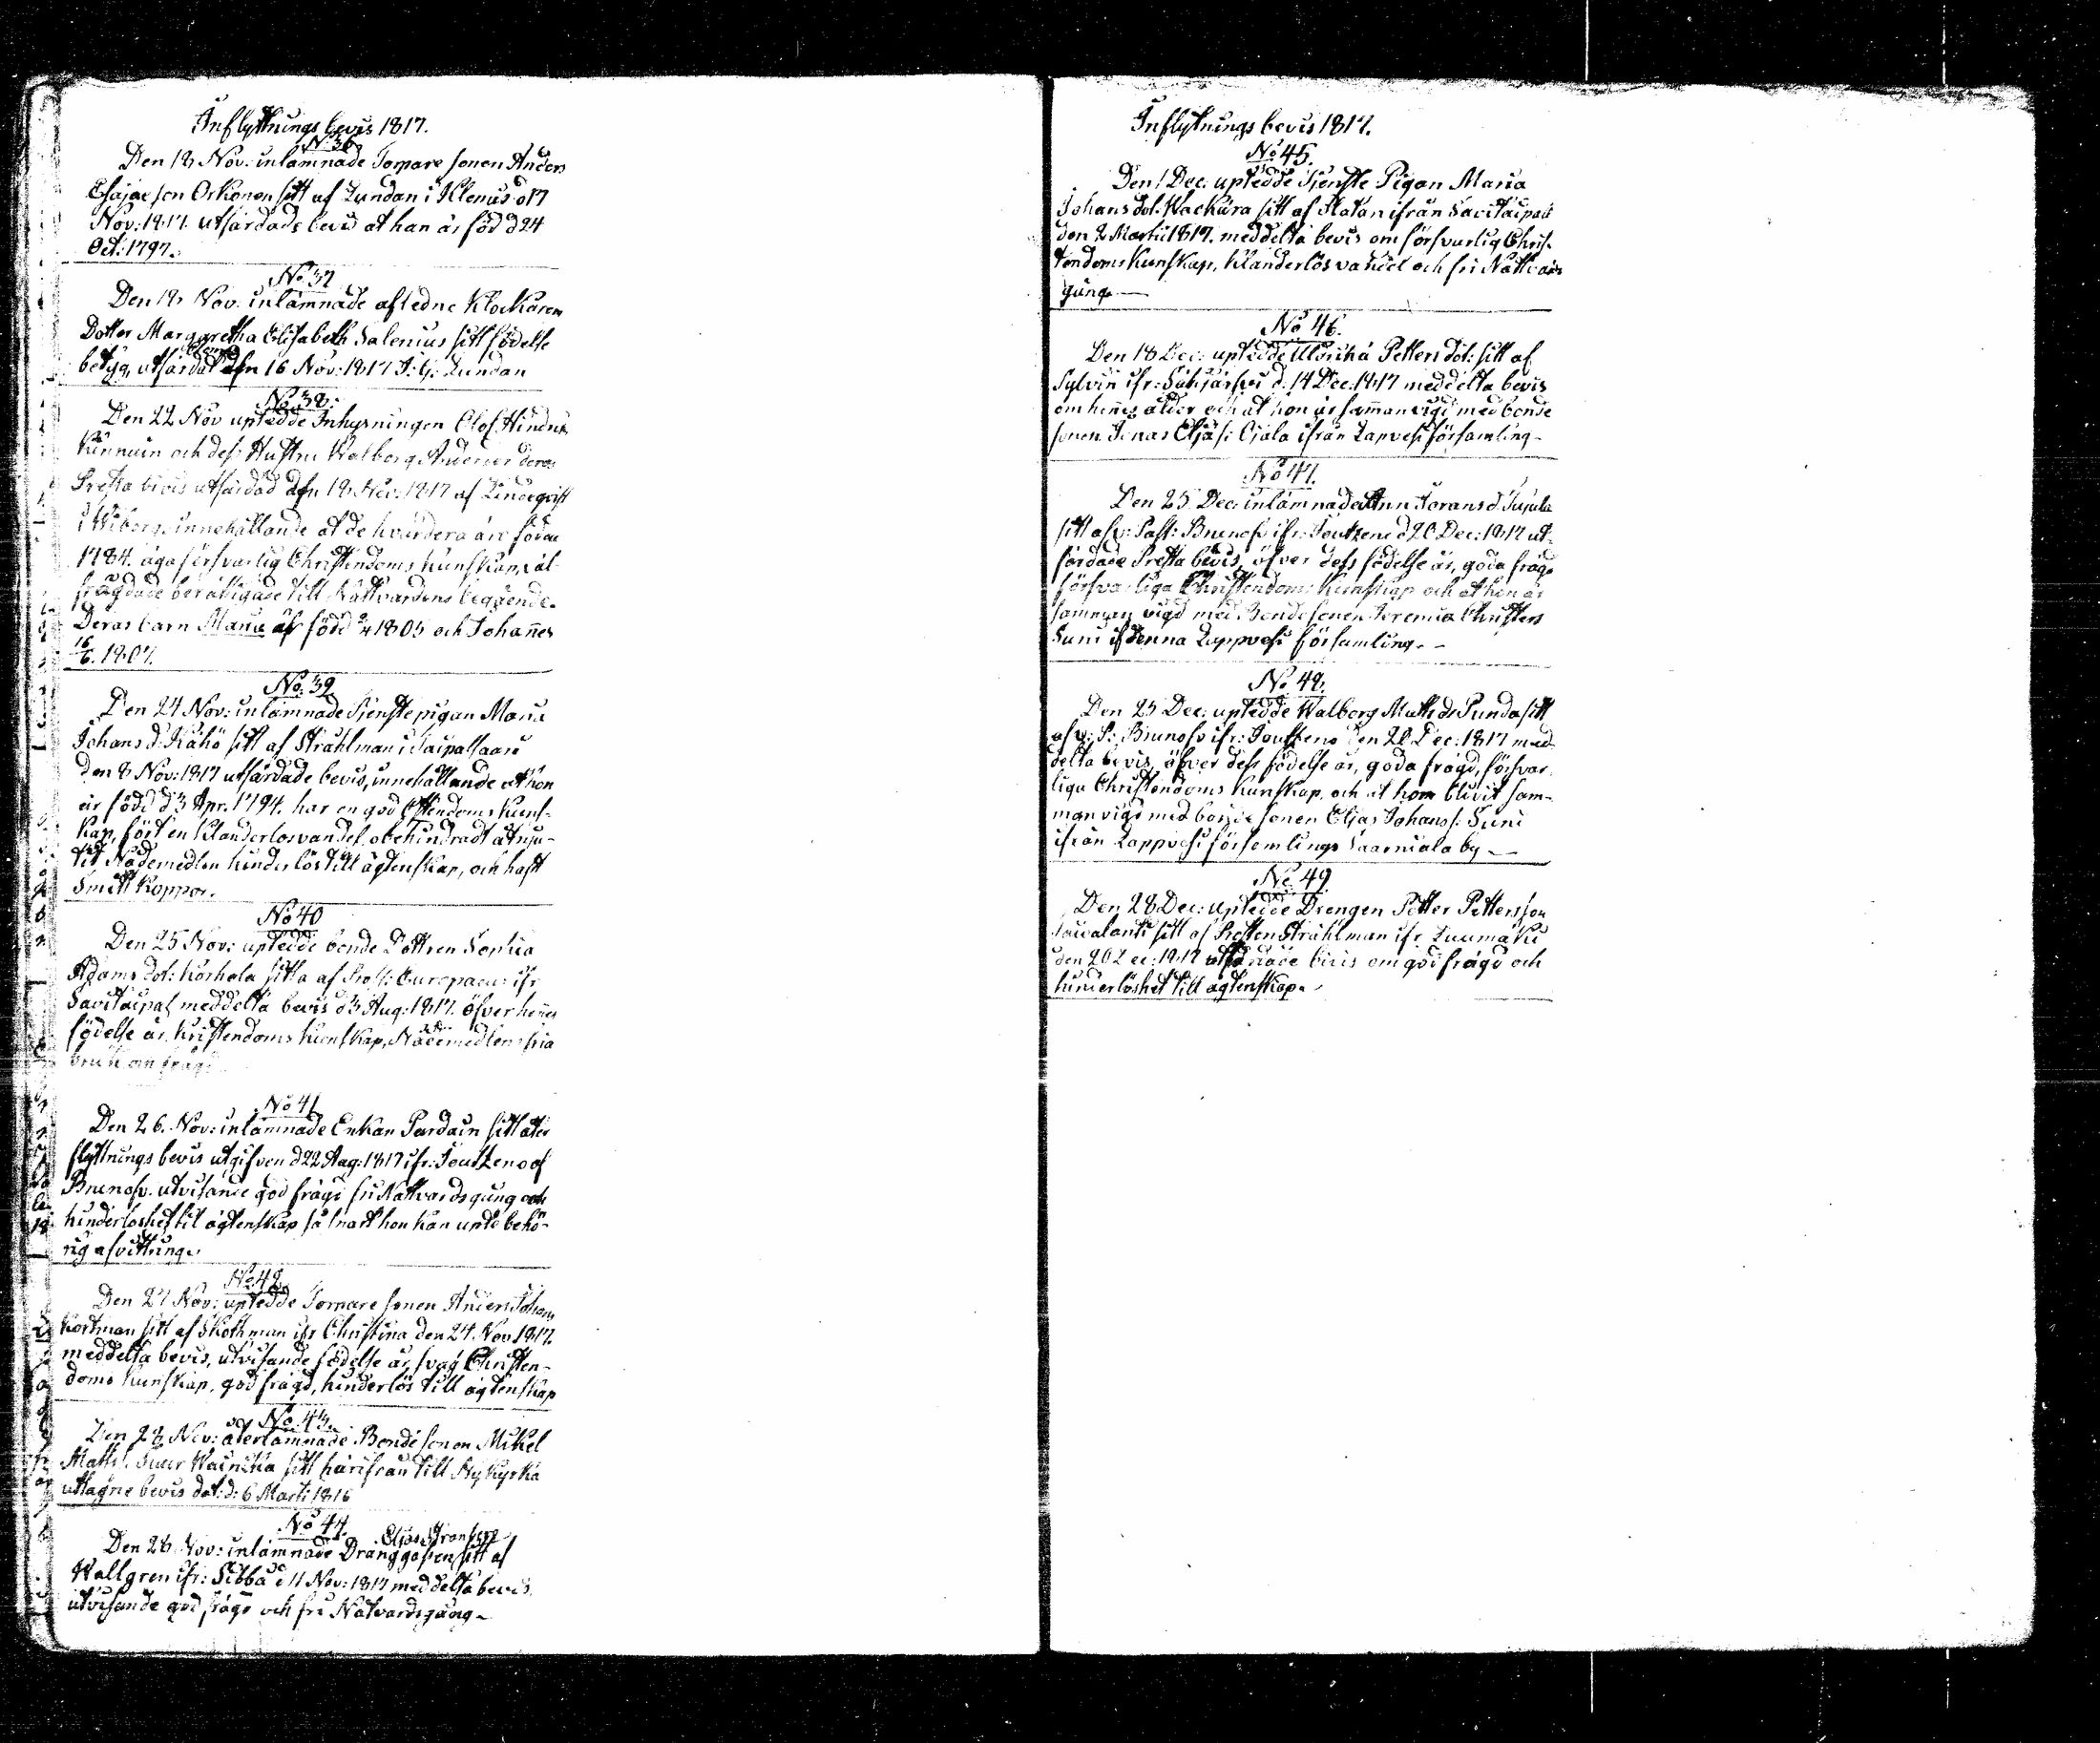 Inflyttnings bevis 1817.
No 36
Den 18 Nov: inlämnade Torpare sonen Anders
Esajae son Orkonen sitt af Lundan i Klemis d 17
Nov: 1817. utfärdade bevis at han är född d 24
Oct: 1797.
No 37
Den 18 Nov. inlämnade afledne Klockaren
Dotter Marggretha Elisabeth Salenius sitt födelse
betyg, utfärdat den 16 Nov: 1817 I: G: Lundan
No 38.
Den 22 Nov uptedde Inhysningen Olof Hindriks
Kinnuin och dess Hustru Walborg Andersdr deras
Presta bevis utfärdad den 18 Nov: 1817 af Lindeqvist
i Wiborg, innehållande at de hvardera äro födda
1784. äga försvarlig Christendoms kunskap, väl
frägdade berättigade till Nattvardens begående.
Deras barn Maria är född 1805 och Johannes
16/6. 1807.
No: 39
Den 24 Nov: inlämnade Tjenstepigan Maria
Johans d: Kähö sitt af Strahlman i Taipalsaari
den 8 Nov: 1817 utfärdade bevis, innehållande at hon
är född d 3 Apr: 1794. har en god Christendoms kuns-
kap, fört en klanderlös vandel, obehindradt åtnju-
tit Nådemedlen hinderlös till ägtenskap, och haft
Smitt koppor.
No 40
Den 25 Nov: uptedde bonde Dottren Sophia
Adams dot: Korhola sitta af Prost: Europaeus ifr
Savitaipal meddelta bevis d 3 Aug: 1817. öfver hennes
födelse år, kristendoms kunskap, Nådemedlens fria
bruk om frägd
No 41
Den 26. Nov: inlämnade Enkan Pardain sitt åter
flyttnings bevis utgifven d 22 Aug: 1817 ifr: Joutzeno af
Brunow. utvisande god frägd fri Nattvardsgång och
hinderlöshet til ägtenskap så snart hon kan upte behö-
rig afvittring.
No 42.
Den 27 Nov: uptedde Torpare sonen Anders Johans
Kortman sitt af Skothman ifr Christina den 24. Nov 1817.
meddelta bevis, utvisande födelse år, svag Christen-
doms kunskap, god frägd, hinderlös till ägtenskap
No 43.
Den 28 Nov: återlämnade Bonde sonen Mikel
Maths: Suur Wainika sitt härifrån till Nykyrka
uttagne bevis dat: d: 6 Marti 1816
No 44.
Den 28 Nov: inlämnade Dränggossen Elias sitt af
Wallgren ifr: Sibbå d 11 Nov: 1817 meddelta bevis
utvisande god frägd och fri Natvardsgång
Inflytnings bevis 1817.
No 45.
Den 1 Dec: uptedde Tjenste Pigan Maria
Johans dot. Wackura sitt af Platan ifrån Savitaipal
den 2 Martii 1817. meddelta bevis om försvarlig Chris-
tendoms kunskap, klanderlös vandel och fri Nattvards
gång
No 46.
Den 18 Dec: uptedde Ulrika Petters dot: sitt af
Sylvin ifr: Säkjärfvi d: 14 Dec: 1817 meddelta bevis
om hennes ålder och at hon är samman vigd med bonde
sonen Jonas Eljas: Ojala ifrån Lapvesi församling
No 47.
Den 25 Dec: inlämnade Ann Jöransd Tujula
sitt af v: Past: Brunow ifr: Joutzeno d 20 Dec: 1817 ut-
färdade Presta bevis, öfver dess födelse år, goda frägd
försvarliga Christendoms kunskap och at hon är
samman vigd med Bondesonen Jeremia Christers
Suni ifr denna Lappvesi församling.
No 48.
Den 25 Dec: uptedde Walborg Maths dr Punda sitt
af v: P: Brunow ifr: Joutzeno den 20 Dec: 1817 med
delta bevis, öfver dess födelse år, goda frägd, försvar
liga Christendoms kunskap, och at hon blivit sam-
man vigd med bonde sonen Eljas Johanss: Suni
ifrån Lappvesi församlings Saarniala by
No 49.
Den 28 Dec: uptedde Drengen Petter Pettersson
sitt af Prosten Strählman ifr. Luumäki
den 20 Dec: 1817 utfärdade bevis om god frägd och
hinderlöshet till ägtenskap.